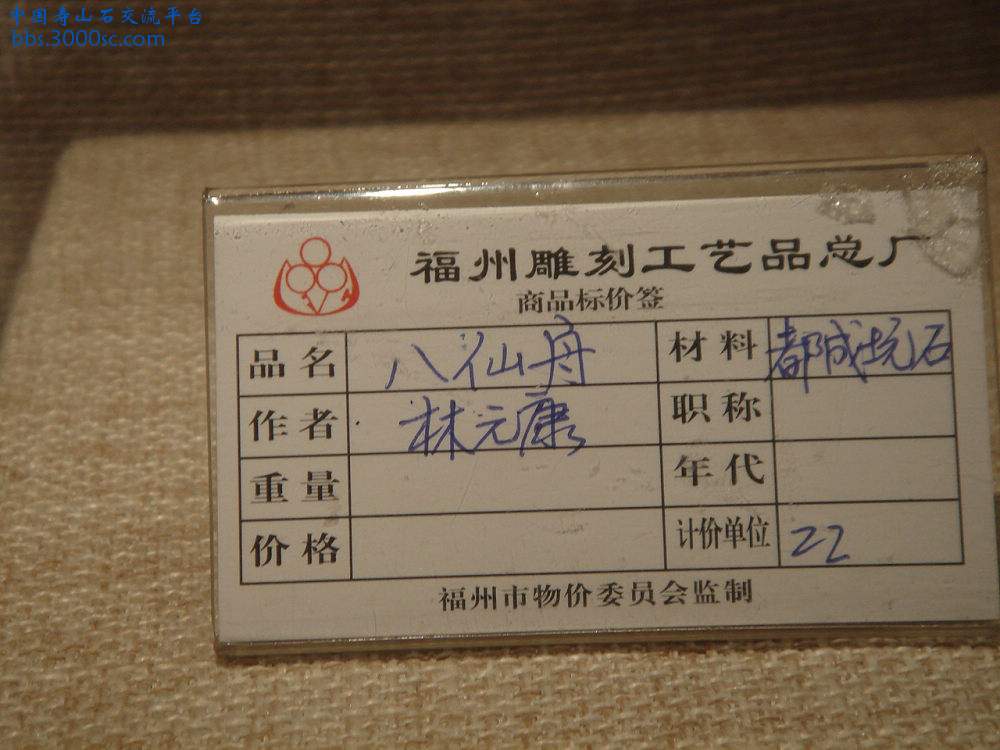 中国寿山石交流平台
bbs.3000sc.com
福州雕刻工艺品总厂
商品标价签
品名 八仙舟 材料 都成坑石
作者 林元康 职称
重量 年代
价格 计价单位 22
福州市物价委员会监制